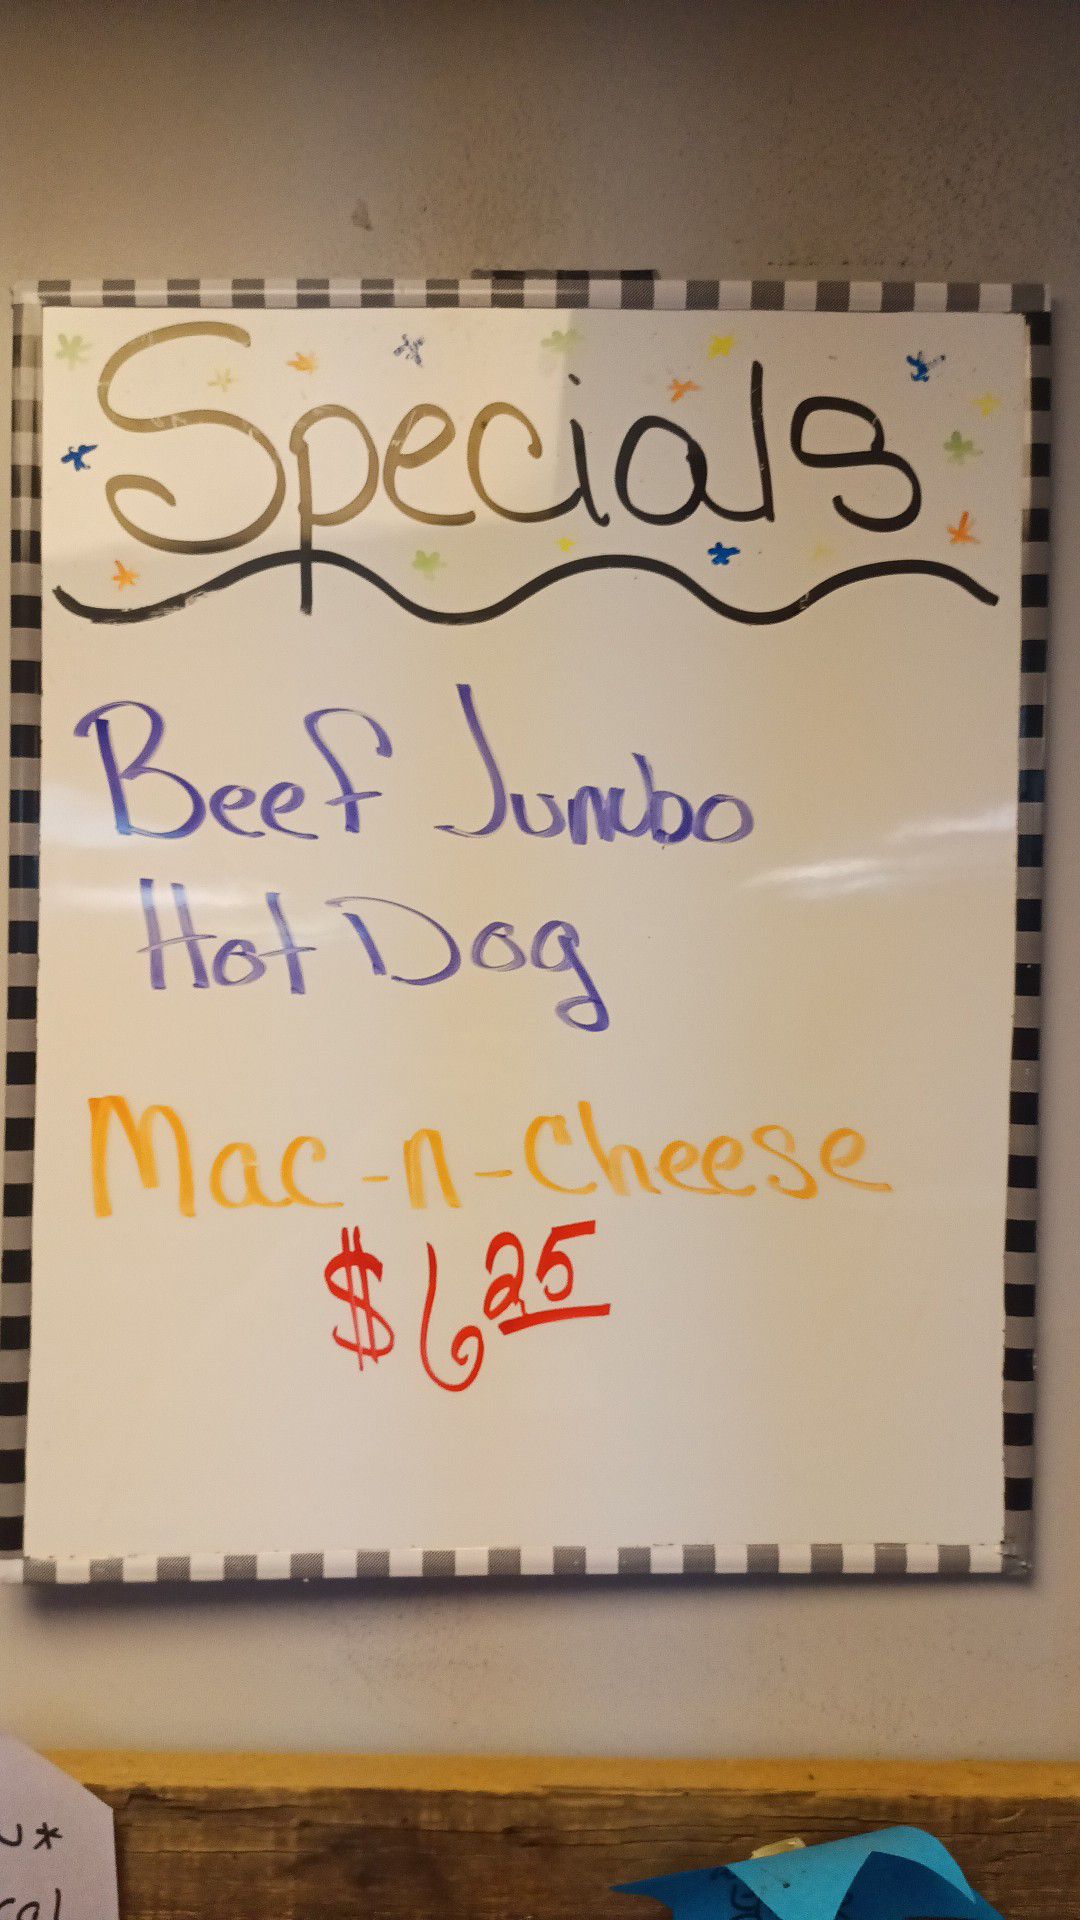 Specials
Beef Jumbo
Hot Dog
Mac-n-Cheese
$6 25